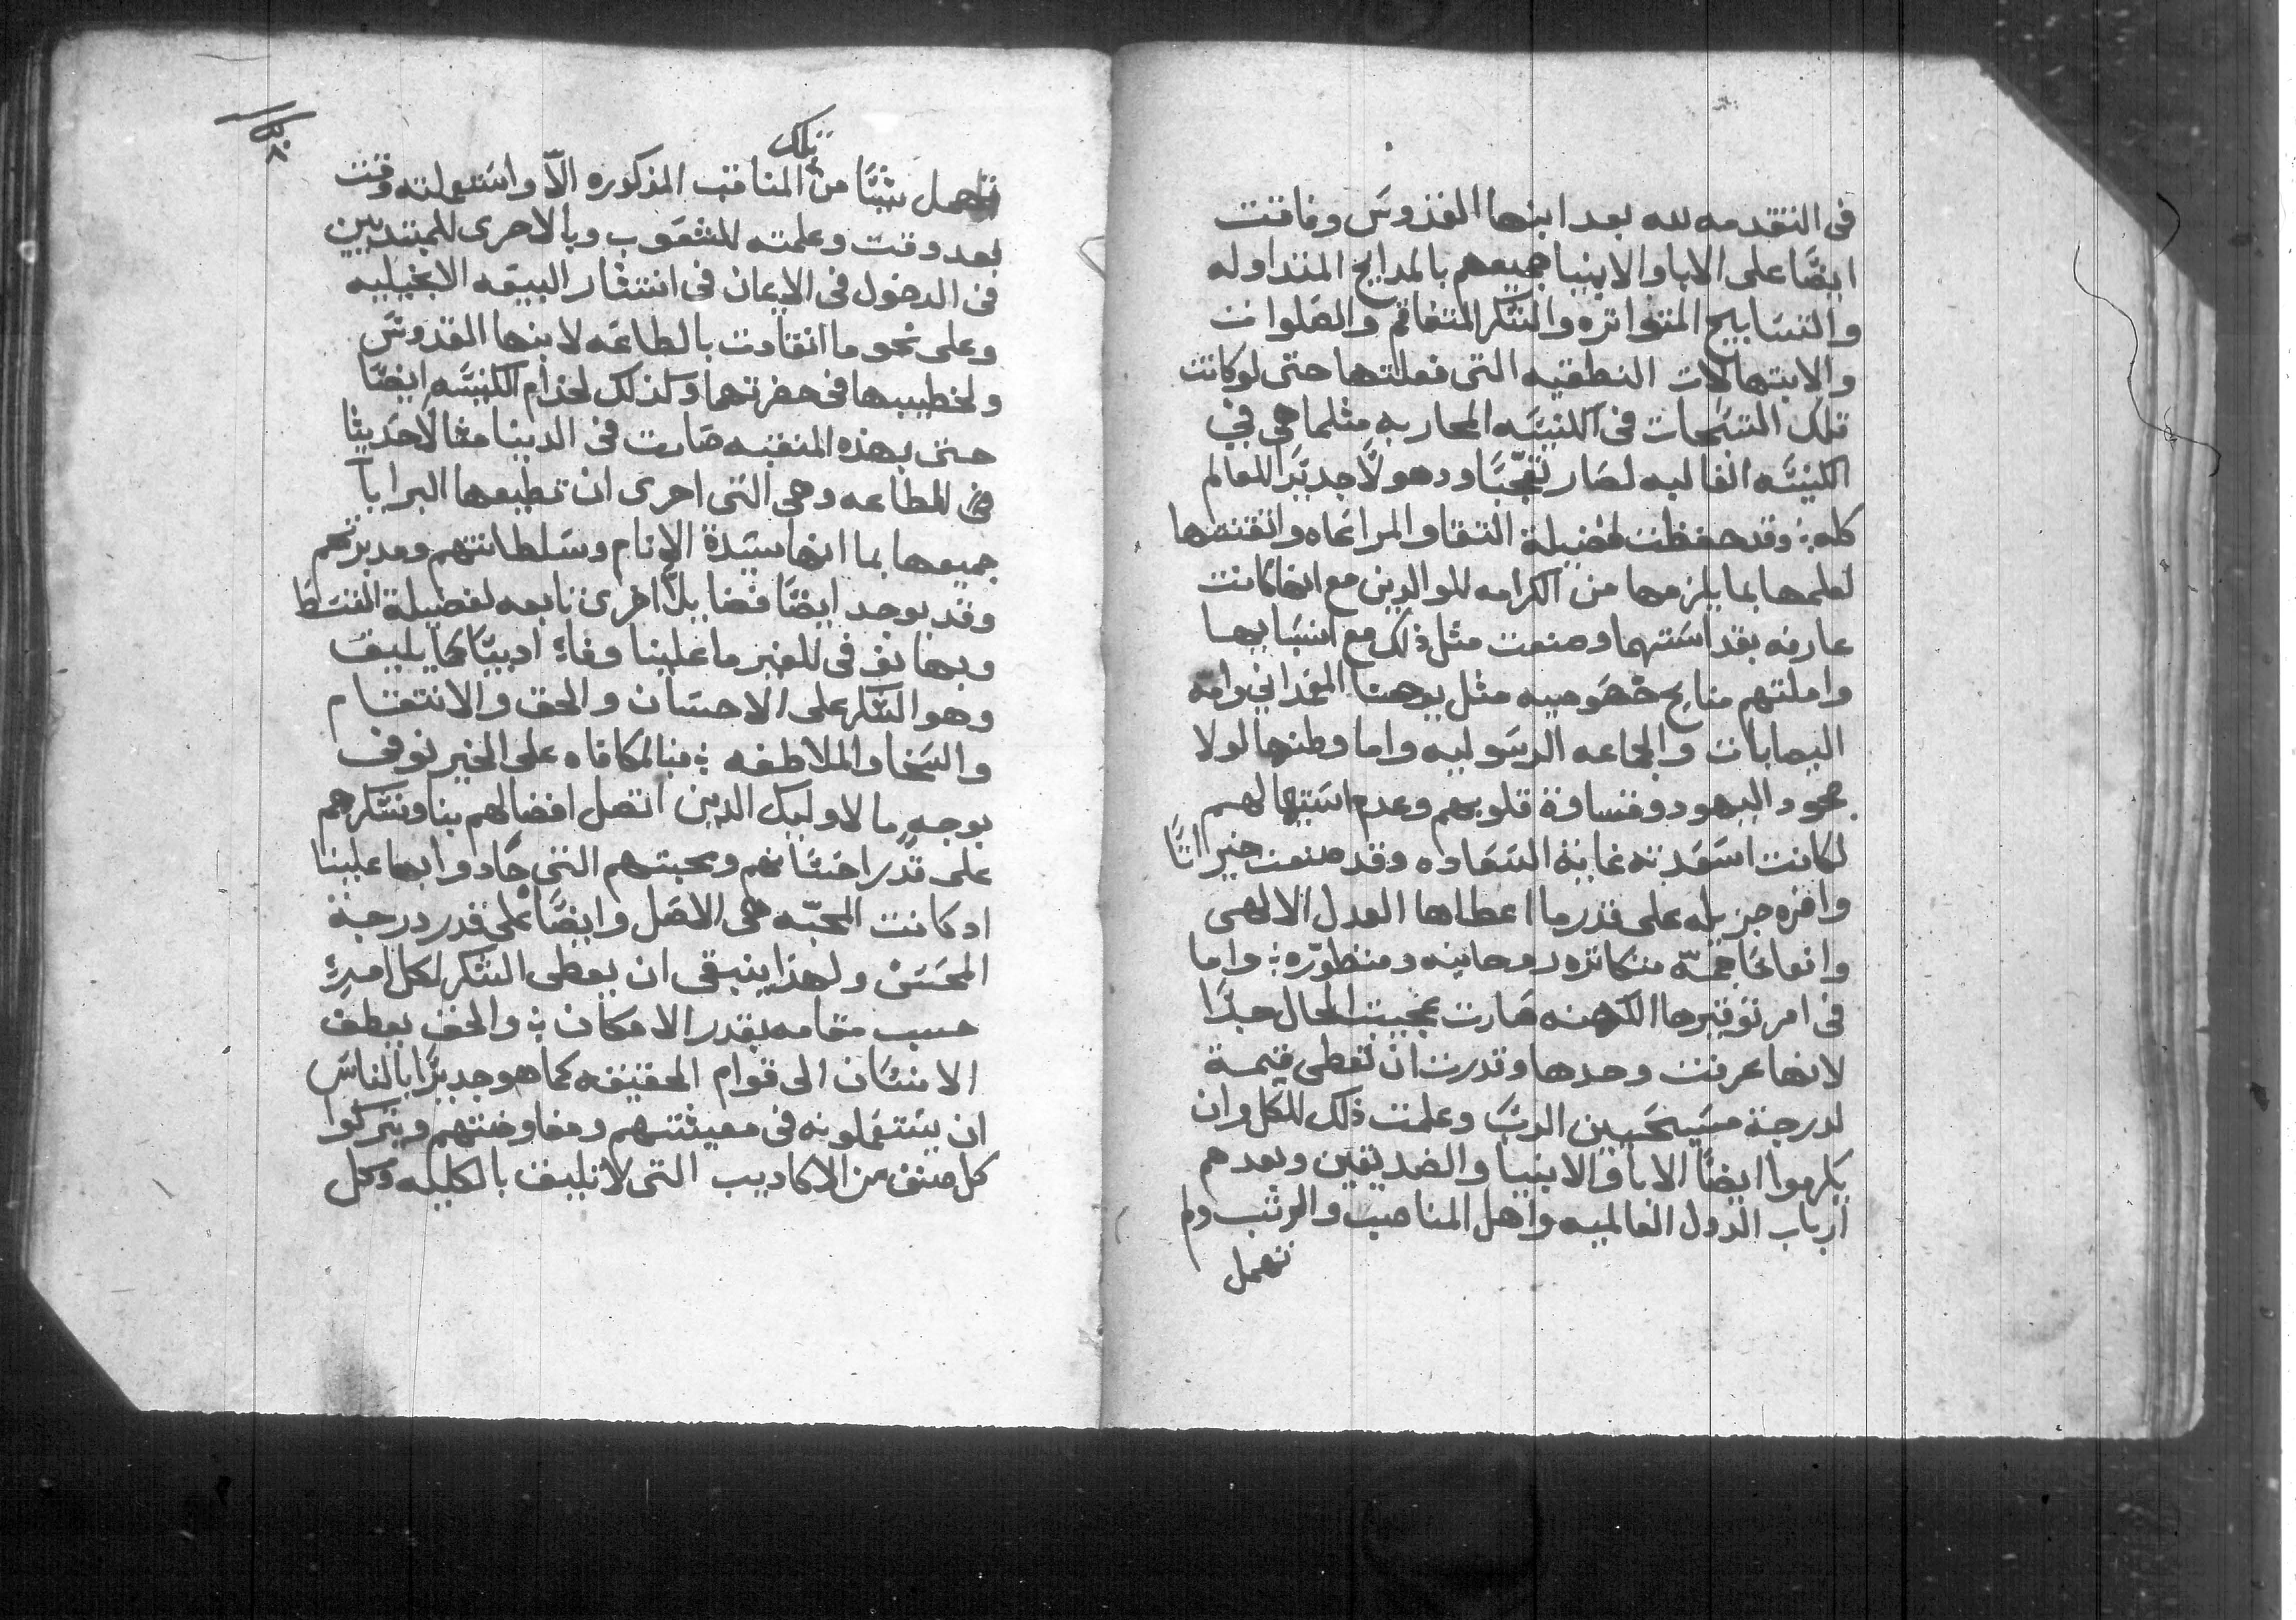 في التقدمه لله بعد ابنها القدوس وفاقت
ايضًا على الابا والانبيا جميعهم بالمدايح المتداوله
والتسابيح المتواتره والشكر المتفاقم والصلوات
والابتهالات النطقيه التي فعلتها حتى لو كانت
تلك التسبحات في الكنيسه المحاربه مثلما هي في
الكنيسه الغالبه لصار تعجبًا وذهولًا جديرًا للعالم
كله وقد حفظت فضيلة التقا والمراعاه واتقنتها
لعلمها بما يلزمها من الكرامه للوالدين مع انها كانت
عارفه بقداستهما وصنعت مثل ذلك مع انسبايها
وانلتهم منايح خصوصيه مثل يوحنا المعمداني وامه
اليصابات والجماعه الرسوليه واما وطنها لولا
جحود اليهود وقساوة قلوبهم وعدم استيهالهم
لكانت اسعدته غاية السعاده وقد صنعت خيراتًا
وافره جزيله على قدر ما اعطاها العدل الالهي
وانعامًا جمّه متكاتره روحانيه ومنظوره واما
في امر توقيرها الكهنه صارت عجيبت الحال جدًا
لانها عرفت وحدها وقدرت ان تعطي قيمة
لدرجة مسيحيين الرب وعلمت ذلك للكل وان
يكرموا ايضًا الابا والانبيا والصديقين وبعدهم
ارباب الدول العالميه واهل المناصب والرتب ولم
تهمل
تهمل شيًا من تلك المناقب المذكوره الّا واستعملته وقت
بعد وقت وعلمته للشعوب وبالاحرى للمبتديين
في الدخول في الايمان في انتشار البيعه الانجيليه
وعلى نحو ما انقادت بالطاعه لابنها القدوس
ولخطيبها في حضرتهما وكذلك لخدام الكنيسه ايضًا
حتى بهذه المنقبه صارت في الدنيا مثالًا حديثا
في الطاعه وهي التي احرى ان تطيعها البرايا
جميعها بما انها سيدة الانام وسلطانتهم ومدبرتهم
وقد يوجد ايضًا فضايل اخرى تابعه لفضيلة القسط
وبها نوفي للغير ما علينا وفاءً ادبيًا كما يليق
وهو الشكر على الاحسان والحق والانتقام
والسخا والملاطفه فبالمكافاه على الخير نوفي
بوجه ما لاوليك الدين اتصل افضالهم بنا ونشكرهم
على قدر احسانهم ومحبتهم التي جادوا بها علينا
اد كانت المحبّه هي الاصل وايضًا على قدر درجة
المحسن ولهذا ينبغي ان يعطى الشكر لكل امرءٍ
حسب مقامه بقدر الامكان والحق يعطف
الانسان الى قوام الحقيقه كما هو جديرًا بالناس
ان يستعملونه في معيشتهم ومفاوضتهم ويتركوا
كل صنف من الاكاديب التي لا تليق بالكليه وكل